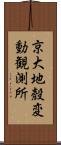 京大地殻変
動観測所